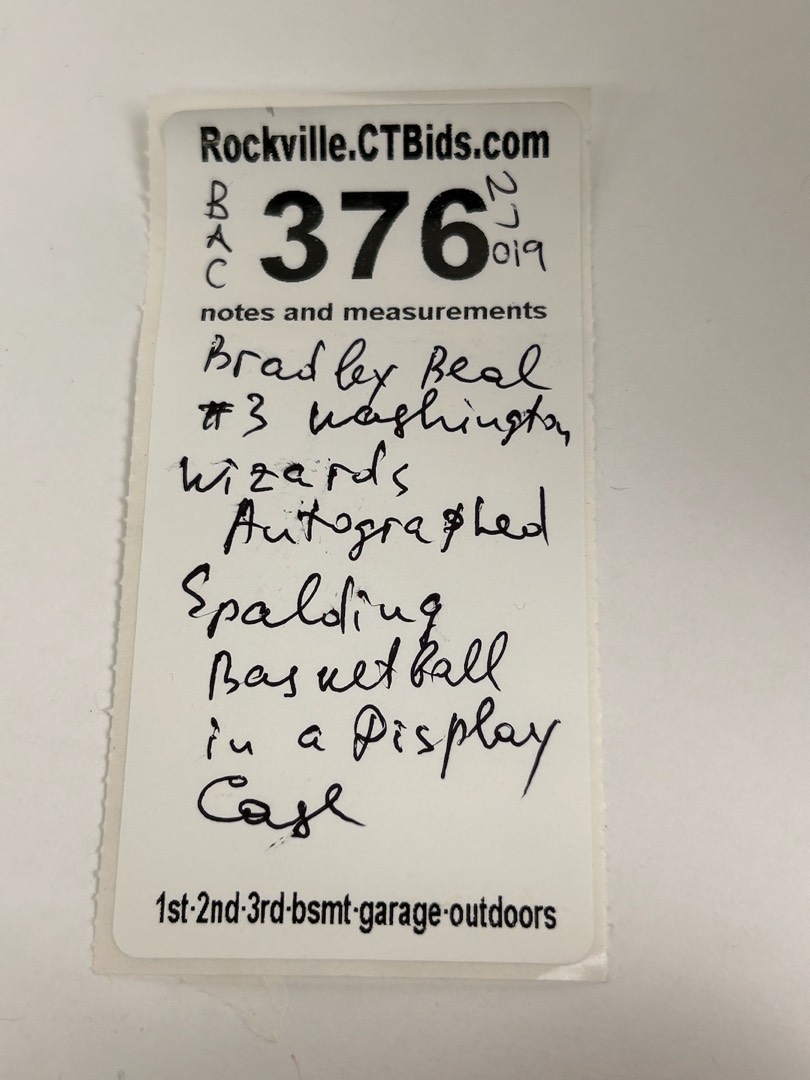 Rockville.CTBids.com
BAC
376
27019
notes and measurements
Bradley Beal
#3 Washington
Wizards
Autographed
Spalding
Basketball
in a Display
Case
1st·2nd·3rd·bsmt·garage·outdoors